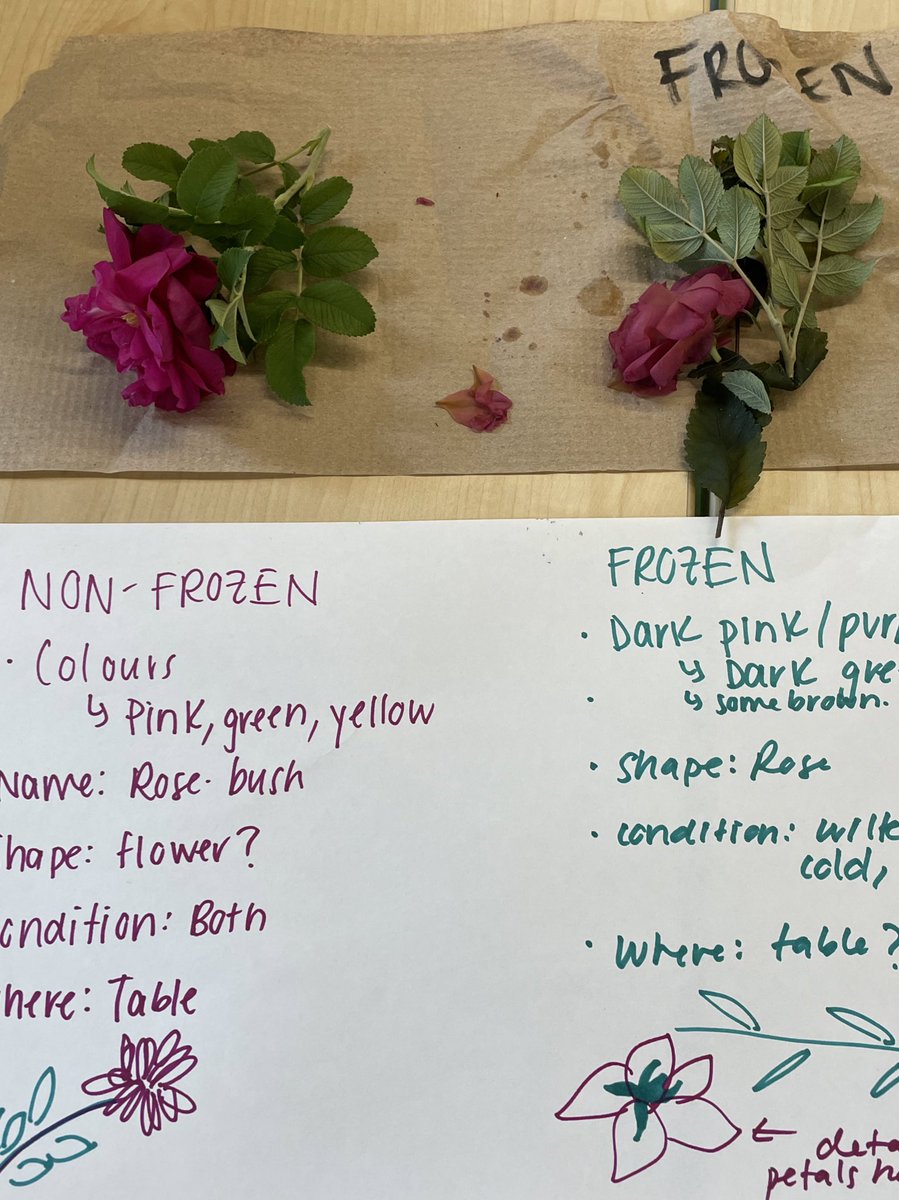 FROZEN
NON-FROZEN
• Colours
↳ Pink, green, yellow
Name: Rose bush
Shape: flower?
Condition: Both
Where: Table
FROZEN
• Dark pink/purp
↳ Dark gre
• ↳ some brown.
• shape: Rose
• condition: wilte
cold,
• Where: table?
← deta
petals ha